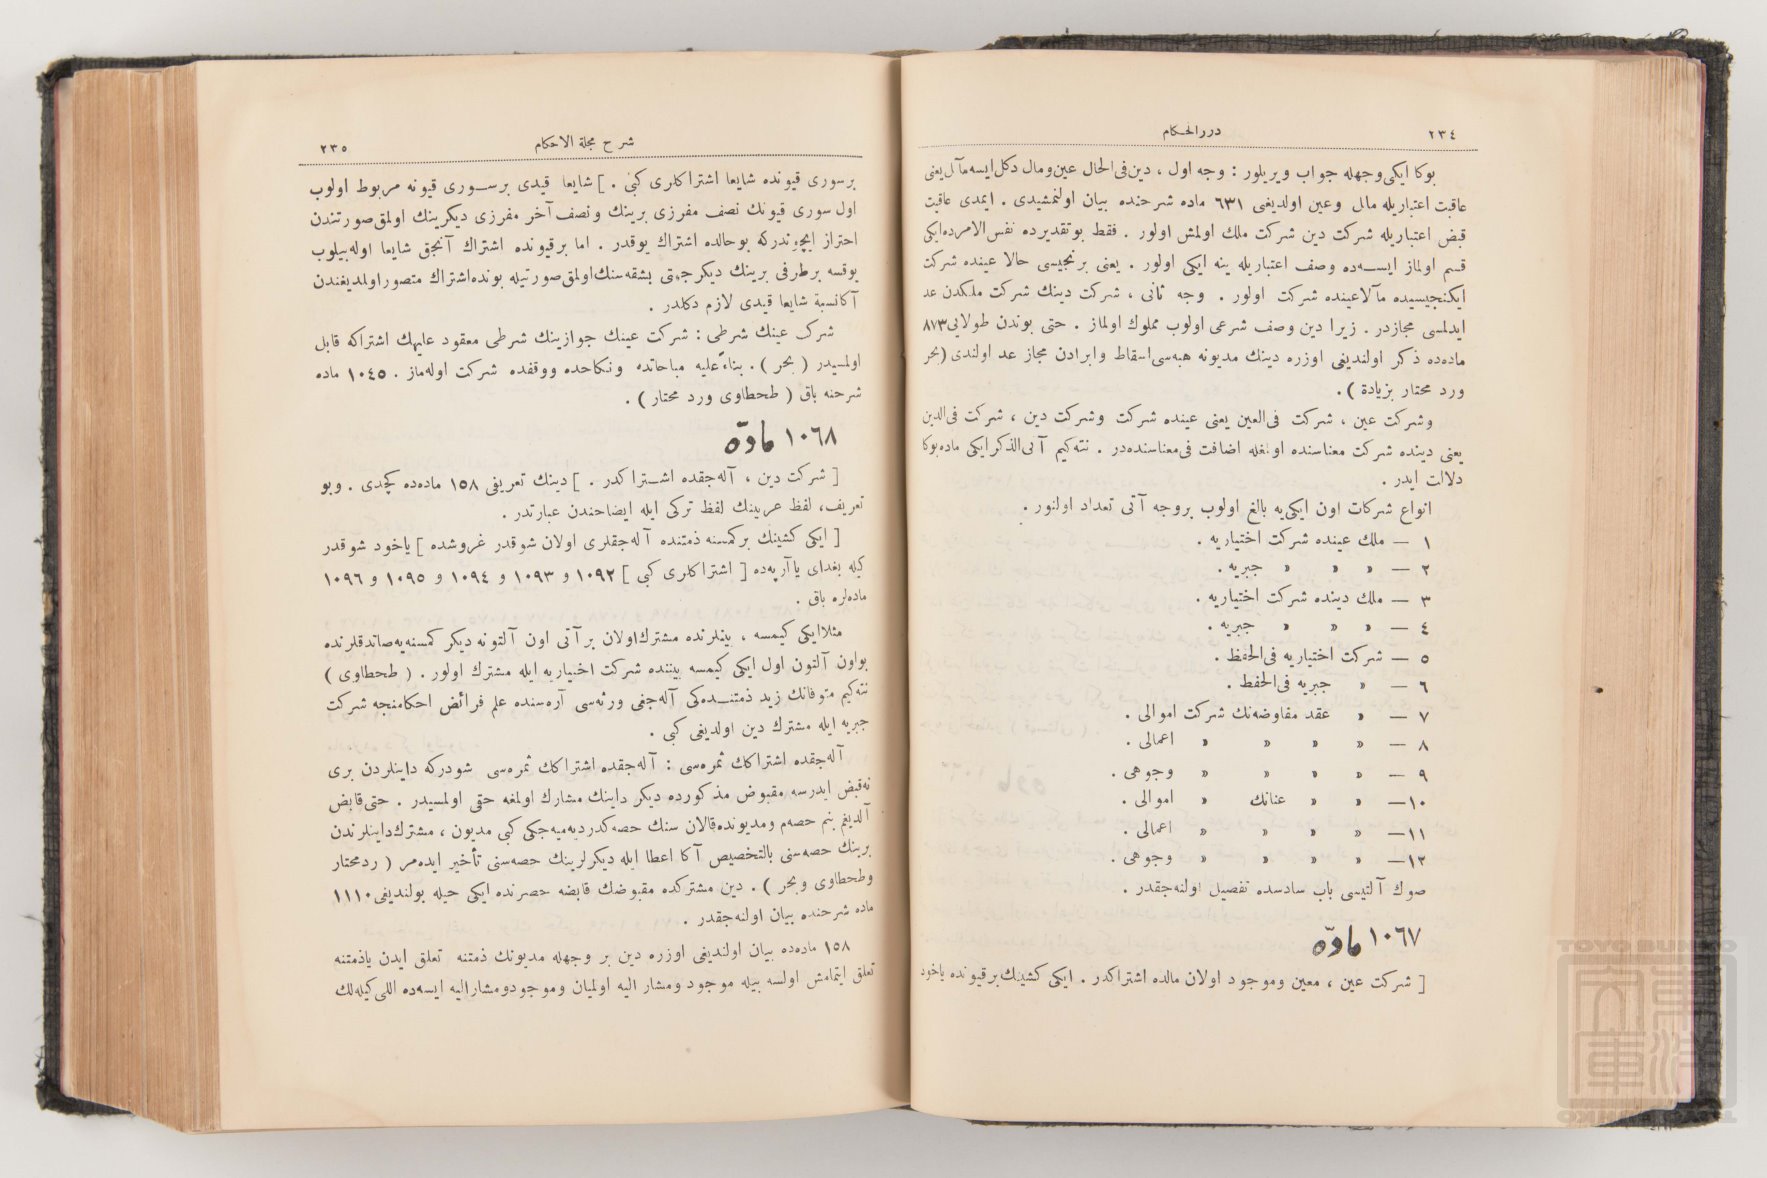 ٢٣٤
دررالحكام
بوكا ايكى وجهله جواب ويريلور : وجه اول ، دين فى الحال عين ومال دكل ايسه مآل يعنى
عاقبت اعتباريله مال وعين اولديغى ٦٣١ ماده شرحنده بيان اولنمشيدى . ايمدى عاقبت
قبض اعتباريله شركت دين شركت ملك اولمش اولور . فقط بو تقديرده نفس الامرده ايكى
قسم اولماز ايسه ده وصف اعتباريله ينه ايكى اولور . يعنى برنجيسى حالا عينده شركت
ايكنجيسيده مآلا عينده شركت اولور . وجه ثانى ، شركت دينك شركت ملكدن عد
ايدلمسى مجازدر . زيرا دين وصف شرعى اولوب مملوك اولماز . حتى بوندن طولايى ٨٧٣
ماده ده ذكر اولنديغى اوزره دينك مديونه هبه سى اسقاط وابرادن مجاز عد اولندى (بحر
ورد محتار بزيادة ) .
وشركت عين ، شركت فى العين يعنى عينده شركت وشركت دين ، شركت فى الدين
يعنى دينده شركت معناسنده اولغله اضافت فى معناسنده در . نته كيم آتى الذكر ايكى ماده بوكا
دلالت ايدر .
انواع شركات اون ايكى يه بالغ اولوب بروجه آتى تعداد اولنور .
١ — ملك عينده شركت اختياريه .
٢ — » » » جبريه .
٣ — ملك دينده شركت اختياريه .
٤ — » » » جبريه .
٥ — شركت اختياريه فى الحفظ .
٦ — » جبريه فى الحفظ .
٧ — » عقد مفاوضه نك شركت اموالى .
٨ — » » » » اعمالى .
٩ — » » » » وجوهى .
١٠— » » عنانك » اموالى .
١١— » » » » اعمالى .
١٢— » » » » وجوهى .
صوك آلتيسى باب سادسده تفصيل اولنه جقدر .
١٠٦٧ مادّه
[ شركت عين ، معين وموجود اولان مالده اشتراكدر . ايكى كشينك برقيونده ياخود
شرح مجلة الاحكام
٢٣٥
برسورى قيونده شايعا اشتراكلرى كبى . ] شايعا قيدى برسورى قيونه مربوط اولوب
اول سورى قيونك نصف مفرزى برينك ونصف آخر مفرزى ديكرينك اولمق صورتندن
احتراز ايچوندركه بوحالده اشتراك يوقدر . اما برقيونده اشتراك آنجق شايعا اوله بيلوب
يوقسه برطرفى برينك ديكر جهتى بشقه سنك اولمق صورتيله بونده اشتراك متصور اولمديغندن
آكا نسبة شايعا قيدى لازم دكلدر .
شرك عينك شرطى : شركت عينك جوازينك شرطى معقود عليهك اشتراكه قابل
اولمسيدر ( بحر ) . بناءً عليه مباحاتده ونكاحده ووقفده شركت اوله ماز . ١٠٤٥ ماده
شرحنه باق ( طحطاوى ورد محتار ) .
١٠٦٨ مادّه
[ شركت دين ، آله جقده اشتراكدر . ] دينك تعريفى ١٥٨ ماده ده كچدى . وبو
تعريف، لفظ عربينك لفظ تركى ايله ايضاحندن عبارتدر .
[ ايكى كشينك بركمسنه ذمتنده آله جقلرى اولان شو قدر غروشده ] ياخود شو قدر
كيله بغداى يا آرپه ده [ اشتراكلرى كبى ] ١٠٩٢ و ١٠٩٣ و ١٠٩٤ و ١٠٩٥ و ١٠٩٦
ماده لره باق .
مثلا ايكى كيمسه ، بينلرنده مشترك اولان بر آتى اون آلتونه ديكر كمسنه يه صاتدقلرنده
بواون آلتون اول ايكى كيمسه بيننده شركت اختياريه ايله مشترك اولور . ( طحطاوى )
نته كيم متوفانك زيد ذمتنده كى آله جغى ورثه سى آره سنده علم فرائض احكامنجه شركت
جبريه ايله مشترك دين اولديغى كبى .
آله جقده اشتراكك ثمره سى : آله جقده اشتراكك ثمره سى شودركه داينلردن برى
نه قبض ايدرسه مقبوض مذكورده ديكر داينك مشارك اولمغه حقى اولمسيدر . حتى قابض
آلديغم بنم حصه م ومديونده قالان سنك حصه كدر ديه ميه جكى كبى مديون ، مشترك داينلرندن
برينك حصه سنى بالتخصيص آكا اعطا ايله ديكرلرينك حصه سنى تأخير ايده مز ( ردمحتار
وطحطاوى وبحر ) . دين مشتركده مقبوضك قابضه حصرنده ايكى حيله بولنديغى ١١١٠
ماده شرحنده بيان اولنه جقدر .
١٥٨ ماده ده بيان اولنديغى اوزره دين بر وجهله مديونك ذمتنه تعلق ايدن ياذمتنه
تعلق ايتمامش اولسه بيله موجود ومشار اليه اولميان وموجود ومشاراليه ايسه ده اللى كيله لك